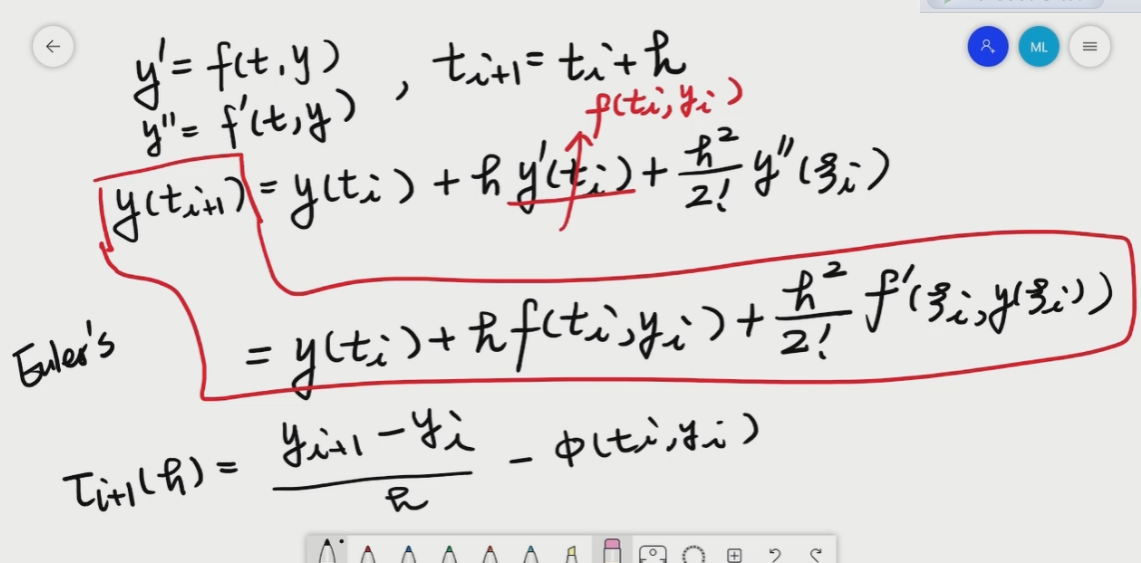 y' = f(t, y) , t_{i+1} = t_i + h
f(t_i, y_i)
y'' = f'(t, y)
y(t_{i+1}) = y(t_i) + h y'(t_i) + h^2/2! y''(ξ_i)
= y(t_i) + h f(t_i, y_i) + h^2/2! f'(ξ_i, y(ξ_i))
Euler's
τ_{i+1}(h) = (y_{i+1} - y_i)/h - φ(t_i, y_i)
ML